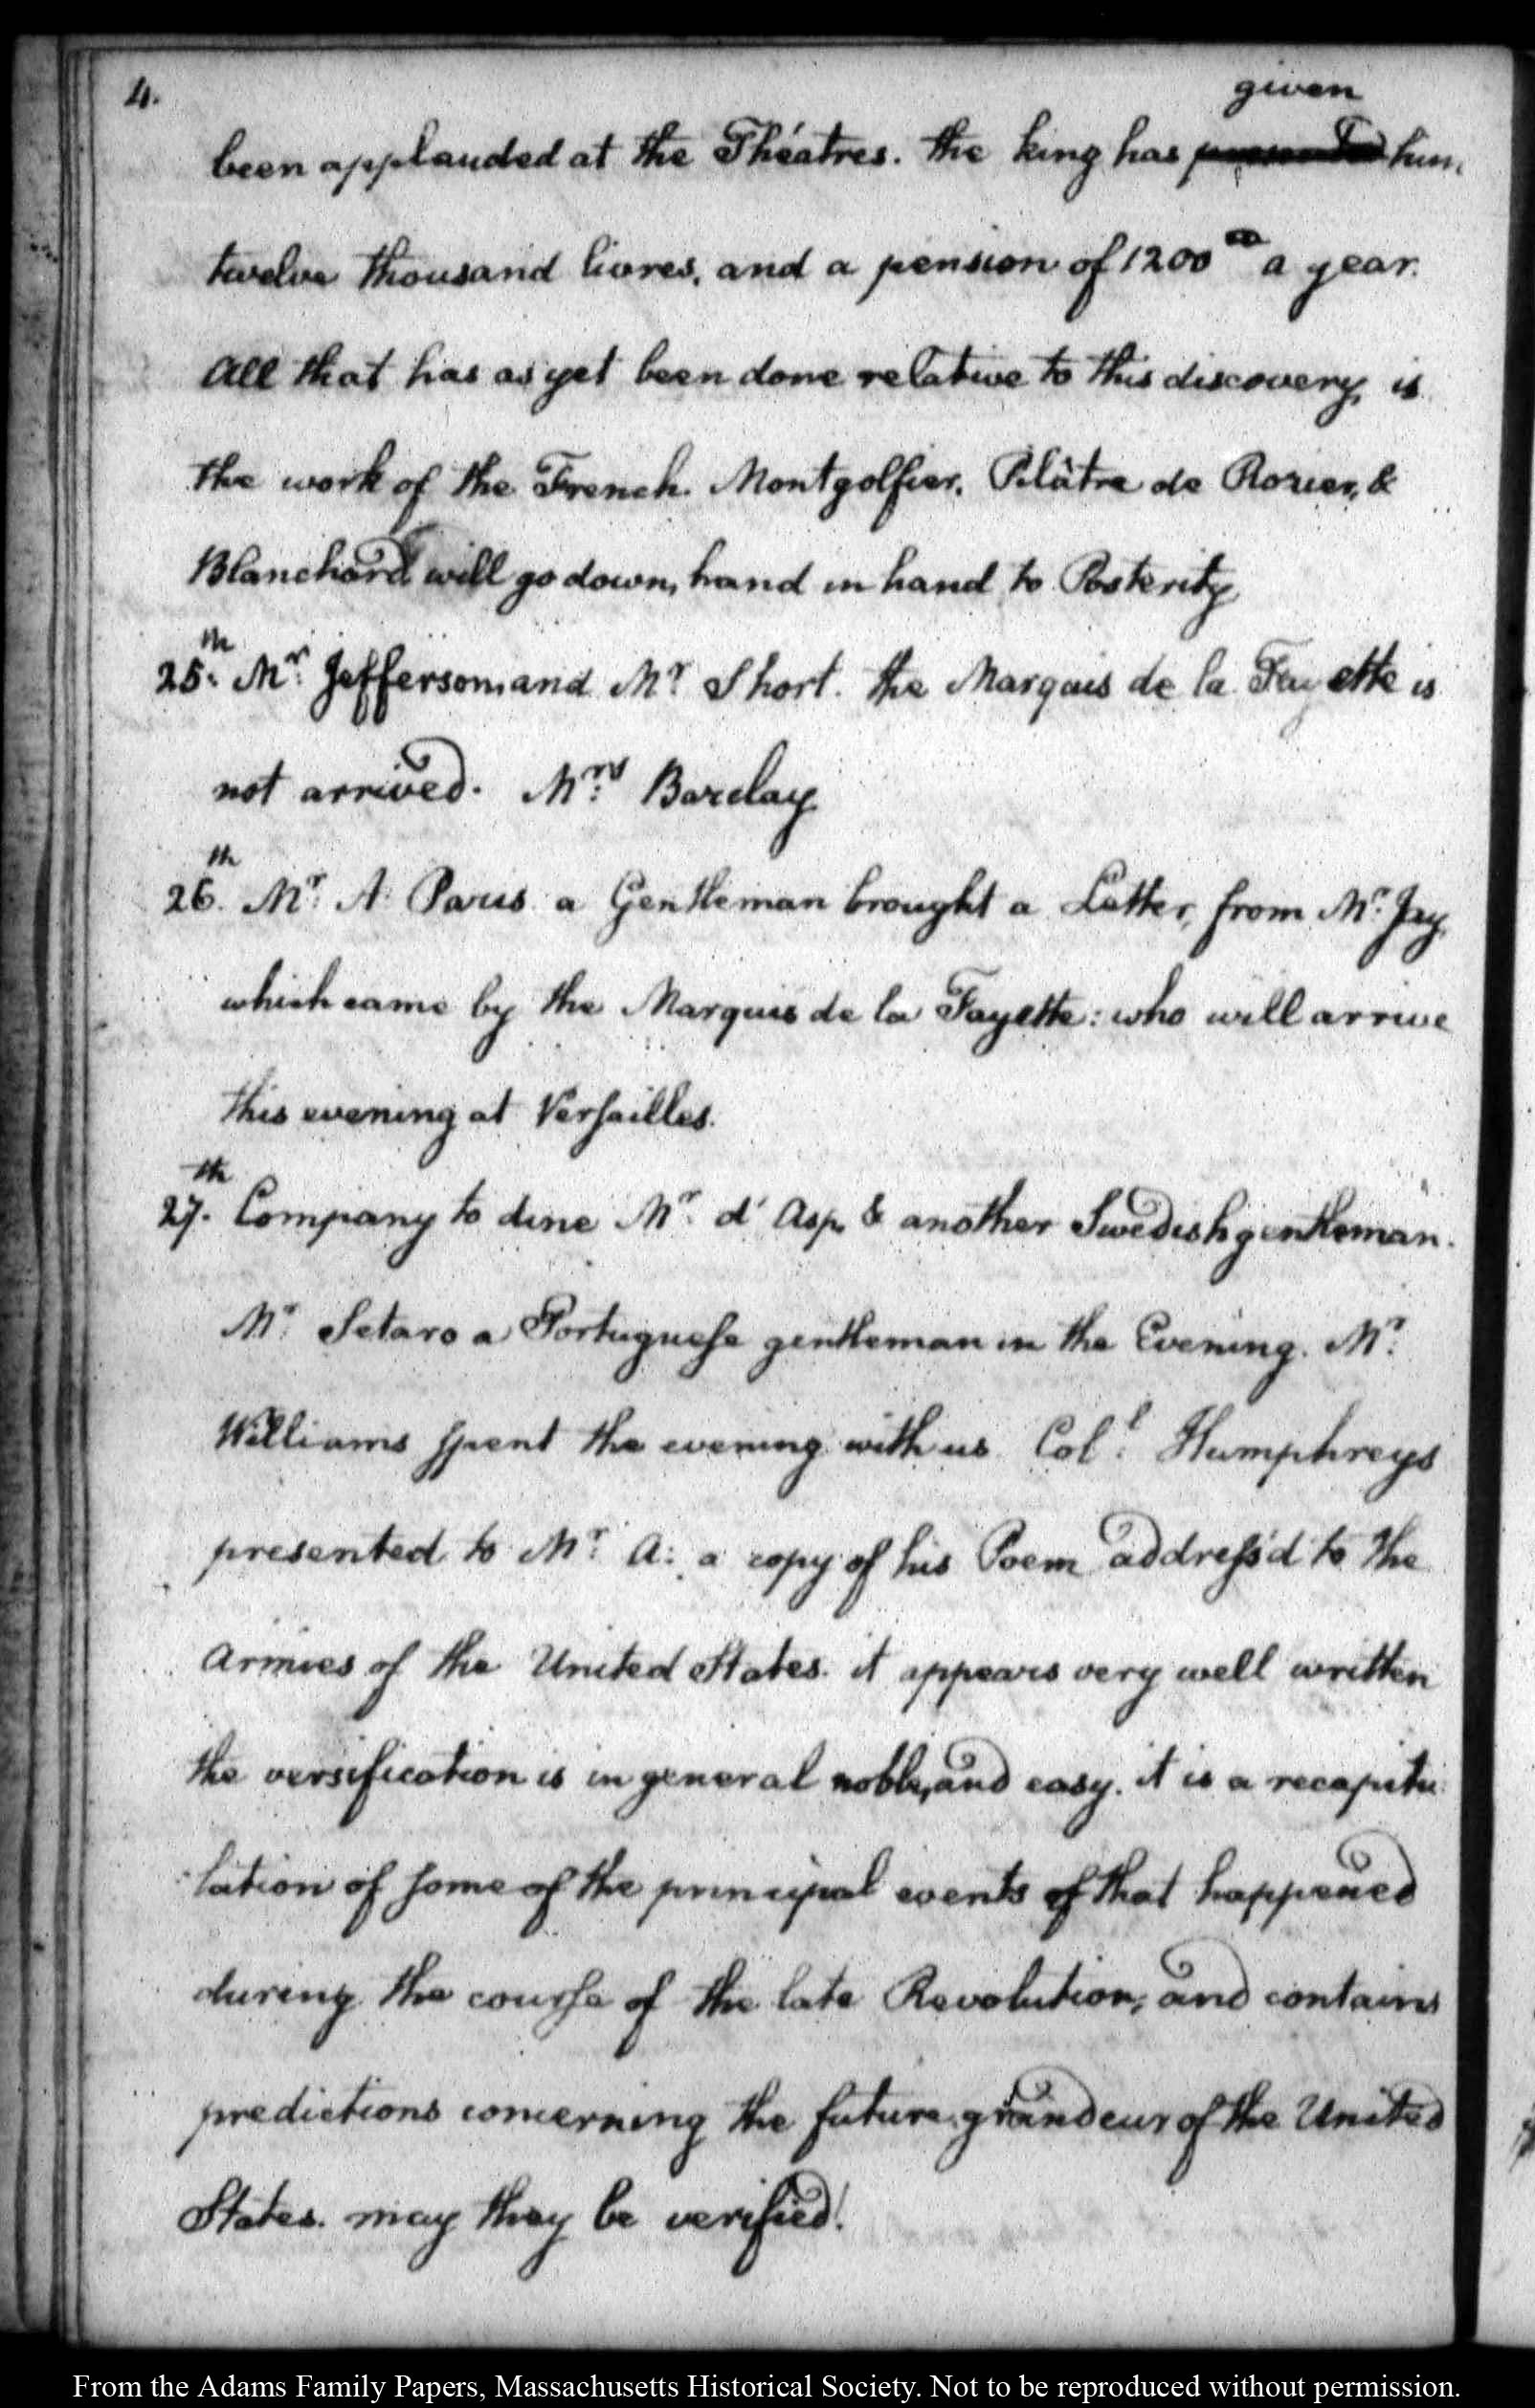 4.
given
been applauded at the Théatres. the king has presented him,
twelve thousand livres, and a pension of 1200 a year.
All that has as yet been done relative to this discovery, is
the work of the French. Montgolfier, Pilâtre de Rozier, &
Blanchard will go down, hand in hand to Posterity
25.th Mr. Jefferson, and Mr. Short. the Marquis de la Fayette is
not arrived. Mrs. Barclay
26.th Mr. A. Paris a Gentleman brought a Letter, from Mr. Jay,
which came by the Marquis de la Fayette: who will arrive
this evening at Verſailles.
27.th Company to dine Mr. d'Asp & another Swedish gentleman.
Mr. Setaro a Portugueſe gentleman in the Evening. Mr.
Williams ſpent the evening with us Coll. Humphreys
presented to Mr. A: a copy of his Poem addreſs'd to the
Armies of the United States. it appears very well written
the versification is in general noble, and easy. it is a recapitu
lation of ſome of the principal events of that happened
during the courſe of the late Revolution, and contains
predictions concerning the future grandeur of the United
States. may they be verified!
From the Adams Family Papers, Massachusetts Historical Society. Not to be reproduced without permission.